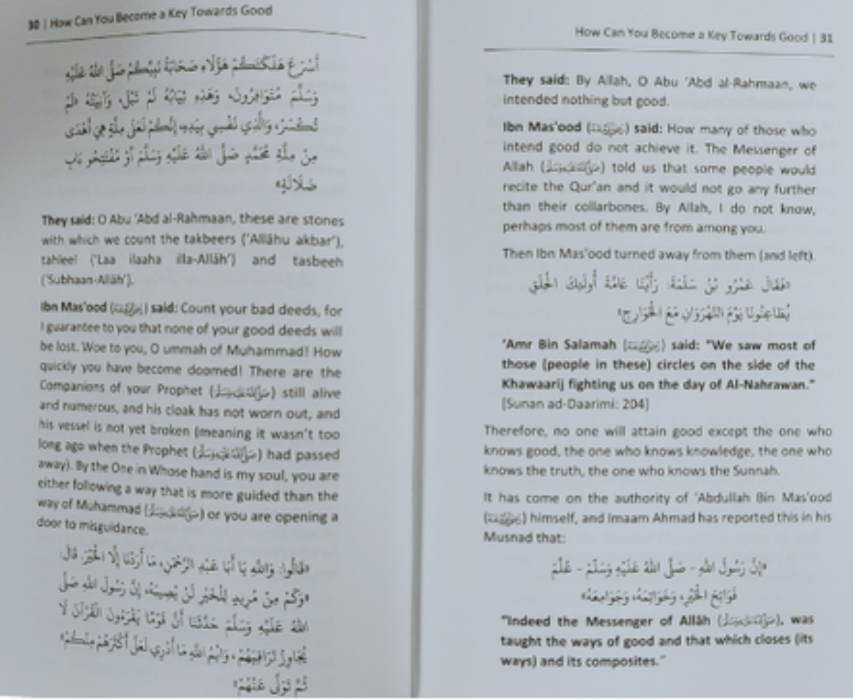 30 | How Can You Become a Key Towards Good
أَسْرَعَ هَلَكَتَكُمْ هَؤُلَاءِ صَحَابَةُ نَبِيِّكُمْ صَلَّى اللهُ عَلَيْهِ
وَسَلَّمَ مُتَوَافِرُونَ، وَهَذِهِ ثِيَابُهُ لَمْ تَبْلَ، وَآنِيَتُهُ لَمْ
تُكْسَرْ، وَالَّذِي نَفْسِي بِيَدِهِ، إِنَّكُمْ لَعَلَى مِلَّةٍ هِيَ أَهْدَى
مِنْ مِلَّةِ مُحَمَّدٍ صَلَّى اللهُ عَلَيْهِ وَسَلَّمَ أَوْ مُفْتَتِحُو بَابِ
ضَلَالَةٍ»
They said: O Abu 'Abd al-Rahmaan, these are stones
with which we count the takbeers ('Allāhu akbar'),
tahleel ('Laa ilaaha illa-Allāh') and tasbeeh
('Subhaan-Allāh').
Ibn Mas'ood () said: Count your bad deeds, for
I guarantee to you that none of your good deeds will
be lost. Woe to you, O ummah of Muhammad! How
quickly you have become doomed! There are the
Companions of your Prophet (ﷺ) still alive
and numerous, and his cloak has not worn out, and
his vessel is not yet broken (meaning it wasn't too
long ago when the Prophet (ﷺ) had passed
away). By the One in Whose hand is my soul, you are
either following a way that is more guided than the
way of Muhammad (ﷺ) or you are opening a
door to misguidance.
«قَالُوا: وَاللهِ يَا أَبَا عَبْدِ الرَّحْمَنِ، مَا أَرَدْنَا إِلَّا الْخَيْرَ. قَالَ:
«وَكَمْ مِنْ مُرِيدٍ لِلْخَيْرِ لَنْ يُصِيبَهُ، إِنَّ رَسُولَ اللهِ صَلَّى
اللهُ عَلَيْهِ وَسَلَّمَ حَدَّثَنَا أَنَّ قَوْمًا يَقْرَءُونَ الْقُرْآنَ لَا
يُجَاوِزُ تَرَاقِيَهُمْ، وَايْمُ اللهِ مَا أَدْرِي لَعَلَّ أَكْثَرَهُمْ مِنْكُمْ»
ثُمَّ تَوَلَّى عَنْهُمْ»
How Can You Become a Key Towards Good | 31
They said: By Allah, O Abu 'Abd al-Rahmaan, we
intended nothing but good.
Ibn Mas'ood () said: How many of those who
intend good do not achieve it. The Messenger of
Allah (ﷺ) told us that some people would
recite the Qur'an and it would not go any further
than their collarbones. By Allah, I do not know,
perhaps most of them are from among you.
Then Ibn Mas'ood turned away from them (and left).
«فَقَالَ عَمْرُو بْنُ سَلَمَةَ: رَأَيْنَا عَامَّةَ أُولَئِكَ الْحِلَقِ
يُطَاعِنُونَا يَوْمَ النَّهْرَوَانِ مَعَ الْخَوَارِجِ»
'Amr Bin Salamah () said: "We saw most of
those (people in these) circles on the side of the
Khawaarij fighting us on the day of Al-Nahrawan."
[Sunan ad-Daarimi: 204]
Therefore, no one will attain good except the one who
knows good, the one who knows knowledge, the one who
knows the truth, the one who knows the Sunnah.
It has come on the authority of 'Abdullah Bin Mas'ood
() himself, and Imaam Ahmad has reported this in his
Musnad that:
«إِنَّ رَسُولَ اللهِ - صَلَّى اللهُ عَلَيْهِ وَسَلَّمَ - عُلِّمَ
فَوَاتِحَ الْخَيْرِ، وَخَوَاتِمَهُ، وَجَوَامِعَهُ»
"Indeed the Messenger of Allāh (ﷺ), was
taught the ways of good and that which closes (its
ways) and its composites."